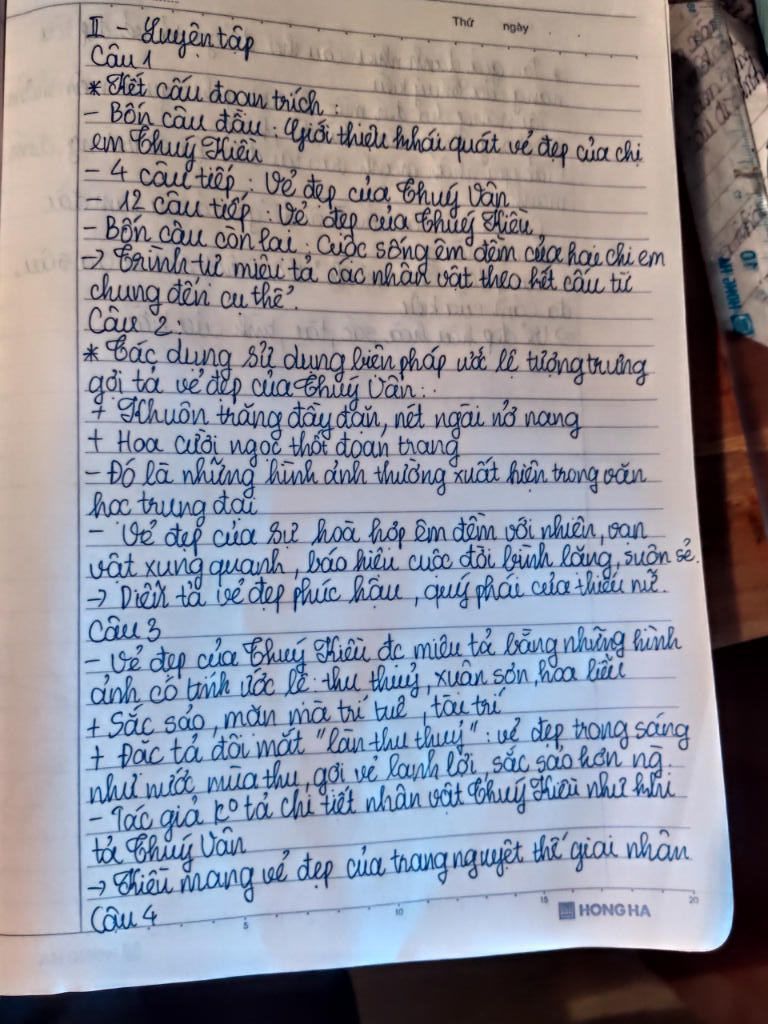 Thứ ngày
II - Luyện tập
Câu 1
* Kết cấu đoạn trích :
- Bốn câu đầu : Giới thiệu khái quát vẻ đẹp của chị
em Thuý Kiều
- 4 câu tiếp : Vẻ đẹp của Thuý Vân
- 12 câu tiếp : Vẻ đẹp của Thuý Kiều
- Bốn câu còn lại : Cuộc sống êm đềm của hai chị em
→ Trình tự miêu tả các nhân vật theo kết cấu từ
chung đến cụ thể.
Câu 2 :
* Tác dụng sử dụng biện pháp ước lệ tượng trưng
gợi tả vẻ đẹp của Thuý Vân :
+ Khuôn trăng đầy đặn, nét ngài nở nang
+ Hoa cười ngọc thốt đoan trang
- Đó là những hình ảnh thường xuất hiện trong văn
học trung đại
- Vẻ đẹp của sự hoà hợp êm đềm với nhiên, vạn
vật xung quanh, báo hiệu cuộc đời bình lặng, suôn sẻ.
→ Diễn tả vẻ đẹp phúc hậu, quý phái của thiếu nữ.
Câu 3
- Vẻ đẹp của Thuý Kiều đc miêu tả bằng những hình
ảnh có tính ước lệ : thu thuỷ, xuân sơn, hoa liễu
+ Sắc sảo, mặn mà trí tuệ, tài trí
+ Đặc tả đôi mắt "làn thu thuỷ" : vẻ đẹp trong sáng
như nước mùa thu, gợi vẻ lanh lời, sắc sảo hơn ng
- Tác giả ko tả chi tiết nhân vật Thuý Kiều như khi
tả Thuý Vân
→ Kiều mang vẻ đẹp của trang nguyệt thế giai nhân
Câu 4
5 10 15 20
HONG HA